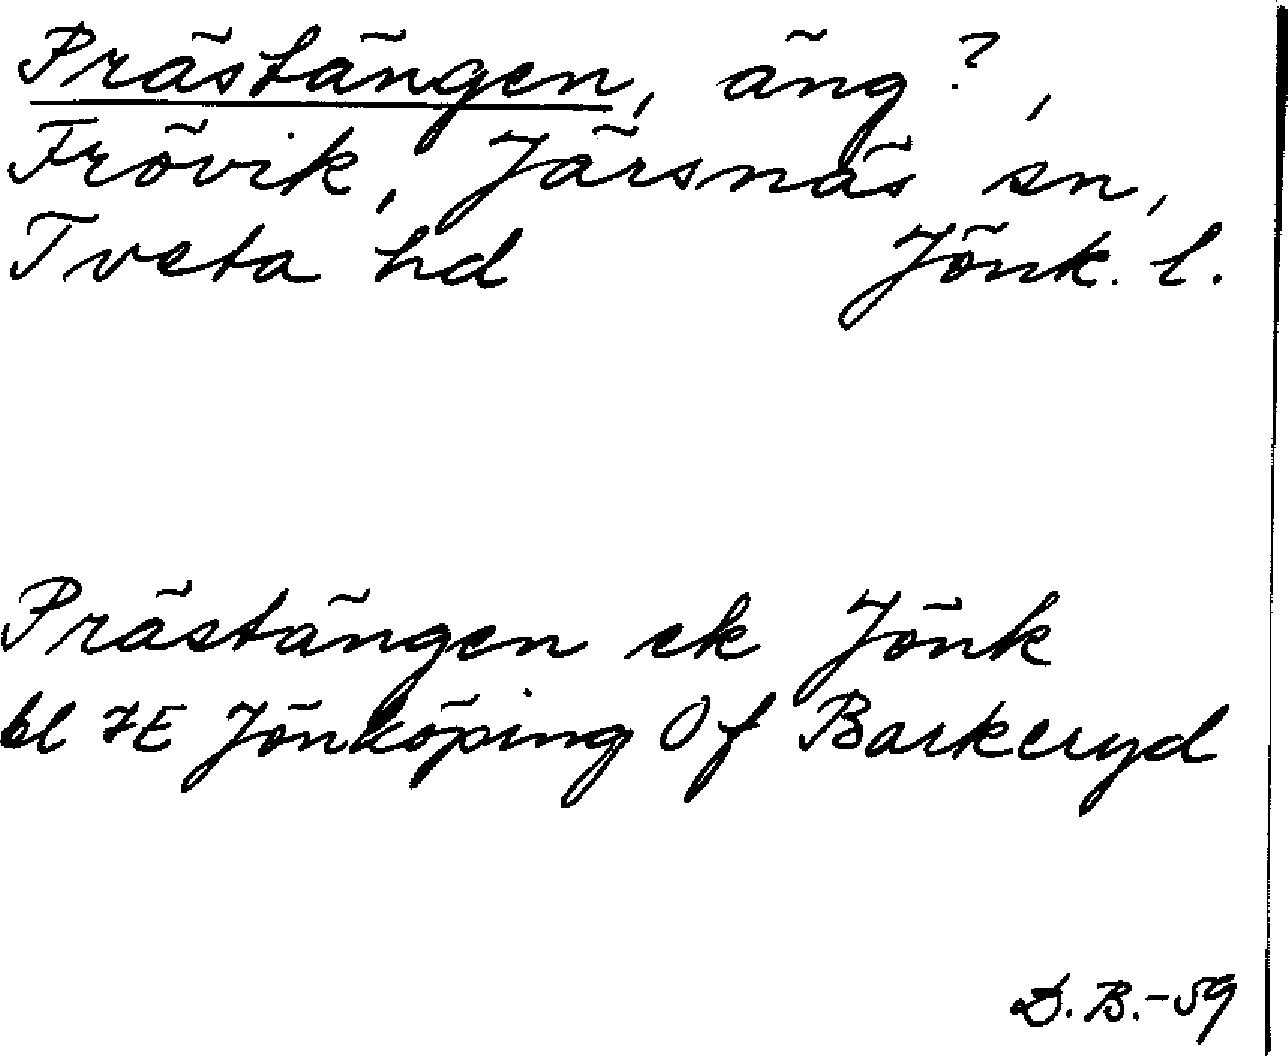 Prästängen, äng?,
Frövik, Järsnäs sn,
Tveta hd Jönk. l.
Prästängen ek Jönk
bl 7E Jönköping Of Barkeryd
D. B.-59